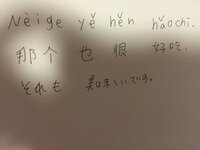 Nèige yě hěn hǎochī.
那个 也 很 好吃.
それも 美味しいです。